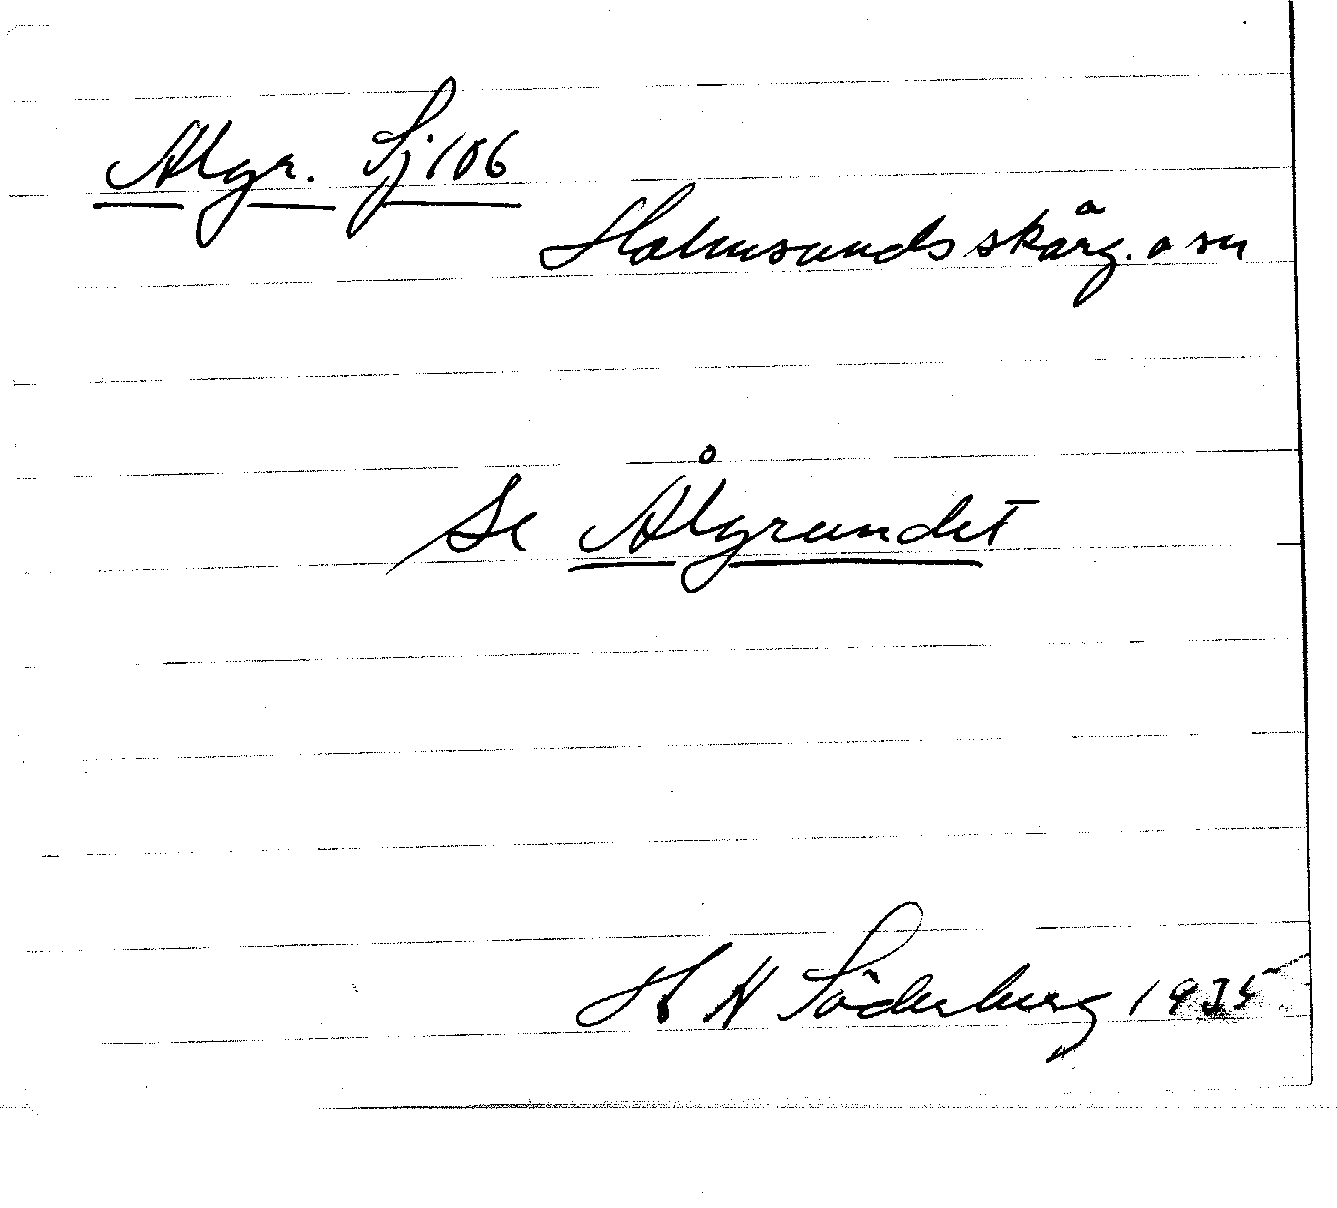 Algr. Sj 106
Holmsunds skärg. o sn
Se Ålgrundet
H H Söderberg 1935